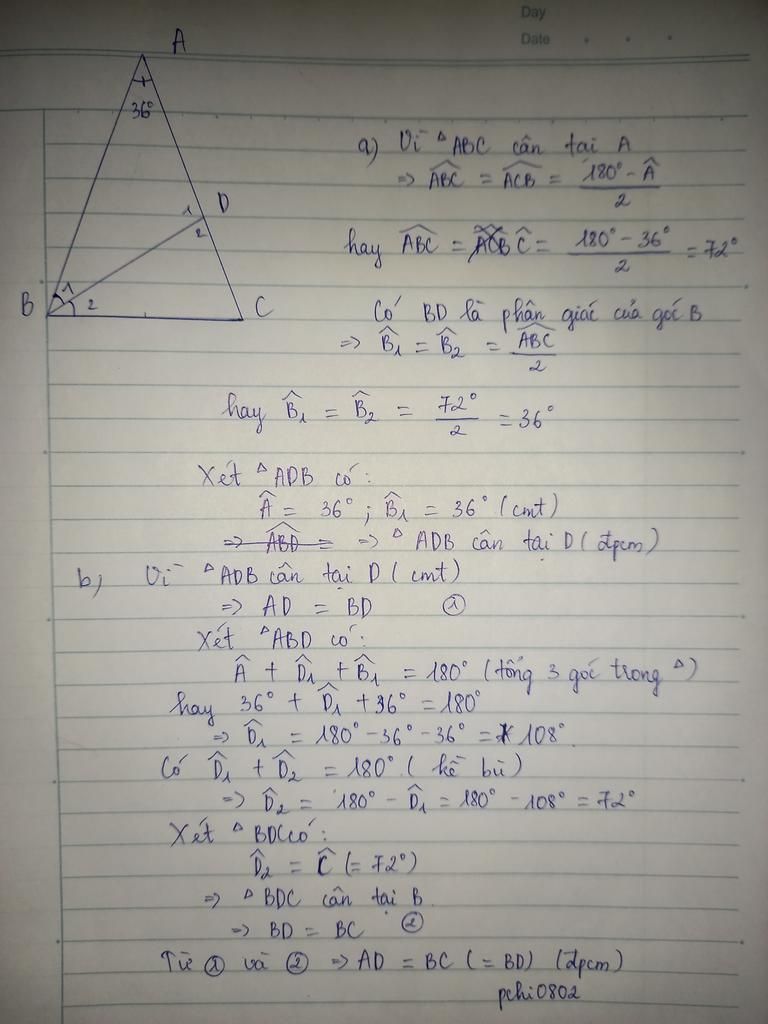 Day
Date
A
36°
1
D
2
B
1
2
C
a) Vì △ABC cân tại A
=> \widehat{ABC} = \widehat{ACB} = \frac{180° - \widehat{A}}{2}
hay \widehat{ABC} = \widehat{C} = \frac{180° - 36°}{2} = 72°
Có BD là phân giác của góc B
=> \widehat{B}₁ = \widehat{B}₂ = \frac{\widehat{ABC}}{2}
hay \widehat{B}₁ = \widehat{B}₂ = \frac{72°}{2} = 36°
Xét △ADB có:
\widehat{A} = 36° ; \widehat{B}₁ = 36° (cmt)
~~=> \widehat{ABD} =~~ => △ ADB cân tại D (đpcm)
b, Vì △ADB cân tại D (cmt)
=> AD = BD ①
Xét △ABD có:
\widehat{A} + \widehat{D}₁ + \widehat{B}₁ = 180° (tổng 3 góc trong △)
hay 36° + \widehat{D}₁ + 36° = 180°
=> \widehat{D}₁ = 180° - 36° - 36° = 108°.
Có \widehat{D}₁ + \widehat{D}₂ = 180° (kề bù)
=> \widehat{D}₂ = 180° - \widehat{D}₁ = 180° - 108° = 72°
Xét △ BDC có:
\widehat{D}₂ = \widehat{C} (= 72°)
=> △ BDC cân tại B.
=> BD = BC ②
Từ ① và ② => AD = BC (= BD) (đpcm)
pchi0802